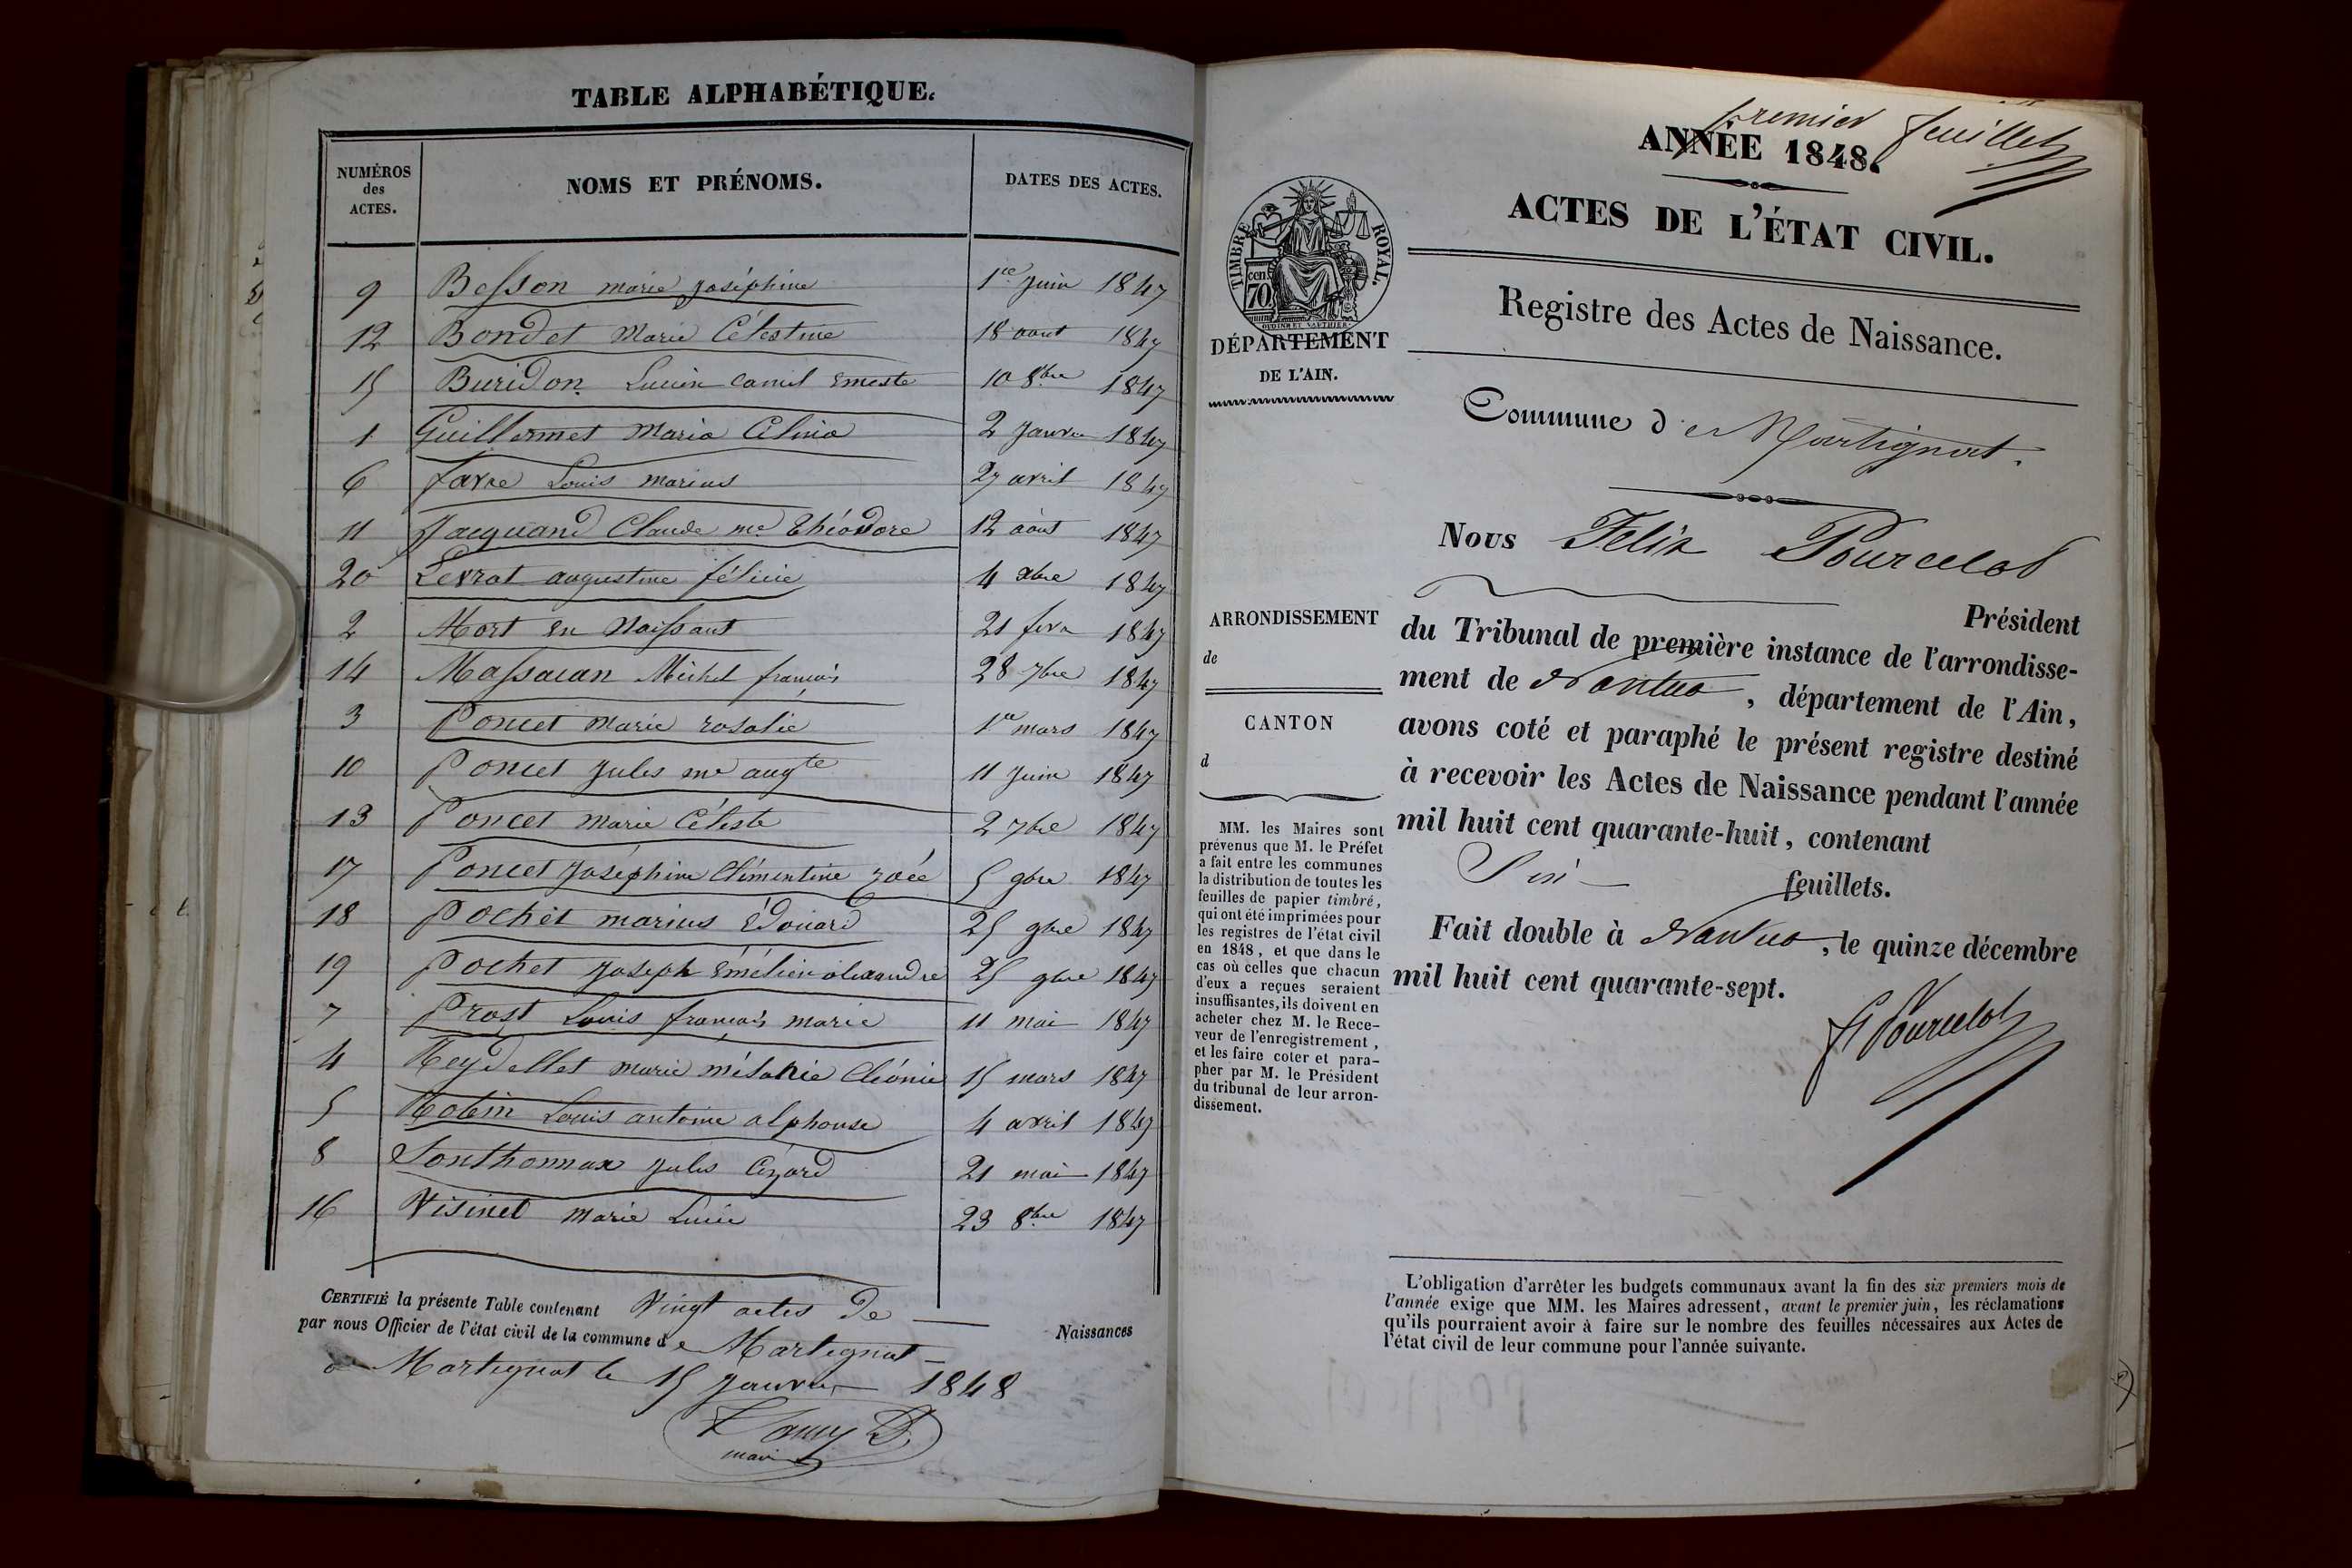 TABLE ALPHABÉTIQUE.
NUMÉROS des ACTES.
NOMS ET PRÉNOMS.
DATES DES ACTES.
9 Besson marie joséphine 1er juin 1847
12 Bondet Marie Célestine 18 aout 1847
15 Buridon Lucien camil erneste 10 8bre 1847
1 Guillermet Maria Célina 2 janvr 1847
6 favre Louis marius 27 avril 1847
11 Jacquand Claude me théodore 12 août 1847
20 Levrat augustine félicie 4 xbre 1847
2 Mort en Naissant 21 fevr 1847
14 Massacan Michel françois 28 7bre 1847
3 Poncet marie rosalie 1er mars 1847
10 Poncet jules me augte 11 juin 1847
13 Poncet marie Céleste 2 7bre 1847
17 Poncet joséphine Clémentine zoée 5 9bre 1847
18 Pochet marius Édouard 25 9bre 1847
19 Pochet joseph émélien alexandre 25 9bre 1847
7 Prost Louis françois marie 11 mai 1847
4 Reydellet marie mélanie Cléonie 15 mars 1847
5 Robin Louis antoine alphonse 4 avril 1847
8 Sonthonnax jules Cézard 21 mai 1847
16 Visinet marie Lucie 23 8bre 1847
CERTIFIÉ la présente Table contenant Vingt actes de Naissances
par nous Officier de l'état civil de la commune de Martignat
a Martignat le 15 janvier 1848
maire
premier feuillet
ANNÉE 1848.
ACTES DE L'ÉTAT CIVIL.
TIMBRE ROYAL.
70 cen
DÉPARTEMENT
DE L'AIN.
Registre des Actes de Naissance.
Commune de Martignat.
Nous Felix Pourcelot
Président
du Tribunal de première instance de l'arrondisse-
ment de Nantua, département de l'Ain,
avons coté et paraphé le présent registre destiné
à recevoir les Actes de Naissance pendant l'année
mil huit cent quarante-huit, contenant
Six feuillets.
Fait double à Nantua, le quinze décembre
mil huit cent quarante-sept.
F Pourcelot
ARRONDISSEMENT
de
CANTON
d
MM. les Maires sont
prévenus que M. le Préfet
a fait entre les communes
la distribution de toutes les
feuilles de papier timbré,
qui ont été imprimées pour
les registres de l'état civil
en 1848, et que dans le
cas où celles que chacun
d'eux a reçues seraient
insuffisantes, ils doivent en
acheter chez M. le Rece-
veur de l'enregistrement,
et les faire coter et para-
pher par M. le Président
du tribunal de leur arron-
dissement.
L'obligation d'arrêter les budgets communaux avant la fin des six premiers mois de
l'année exige que MM. les Maires adressent, avant le premier juin, les réclamations
qu'ils pourraient avoir à faire sur le nombre des feuilles nécessaires aux Actes de
l'état civil de leur commune pour l'année suivante.